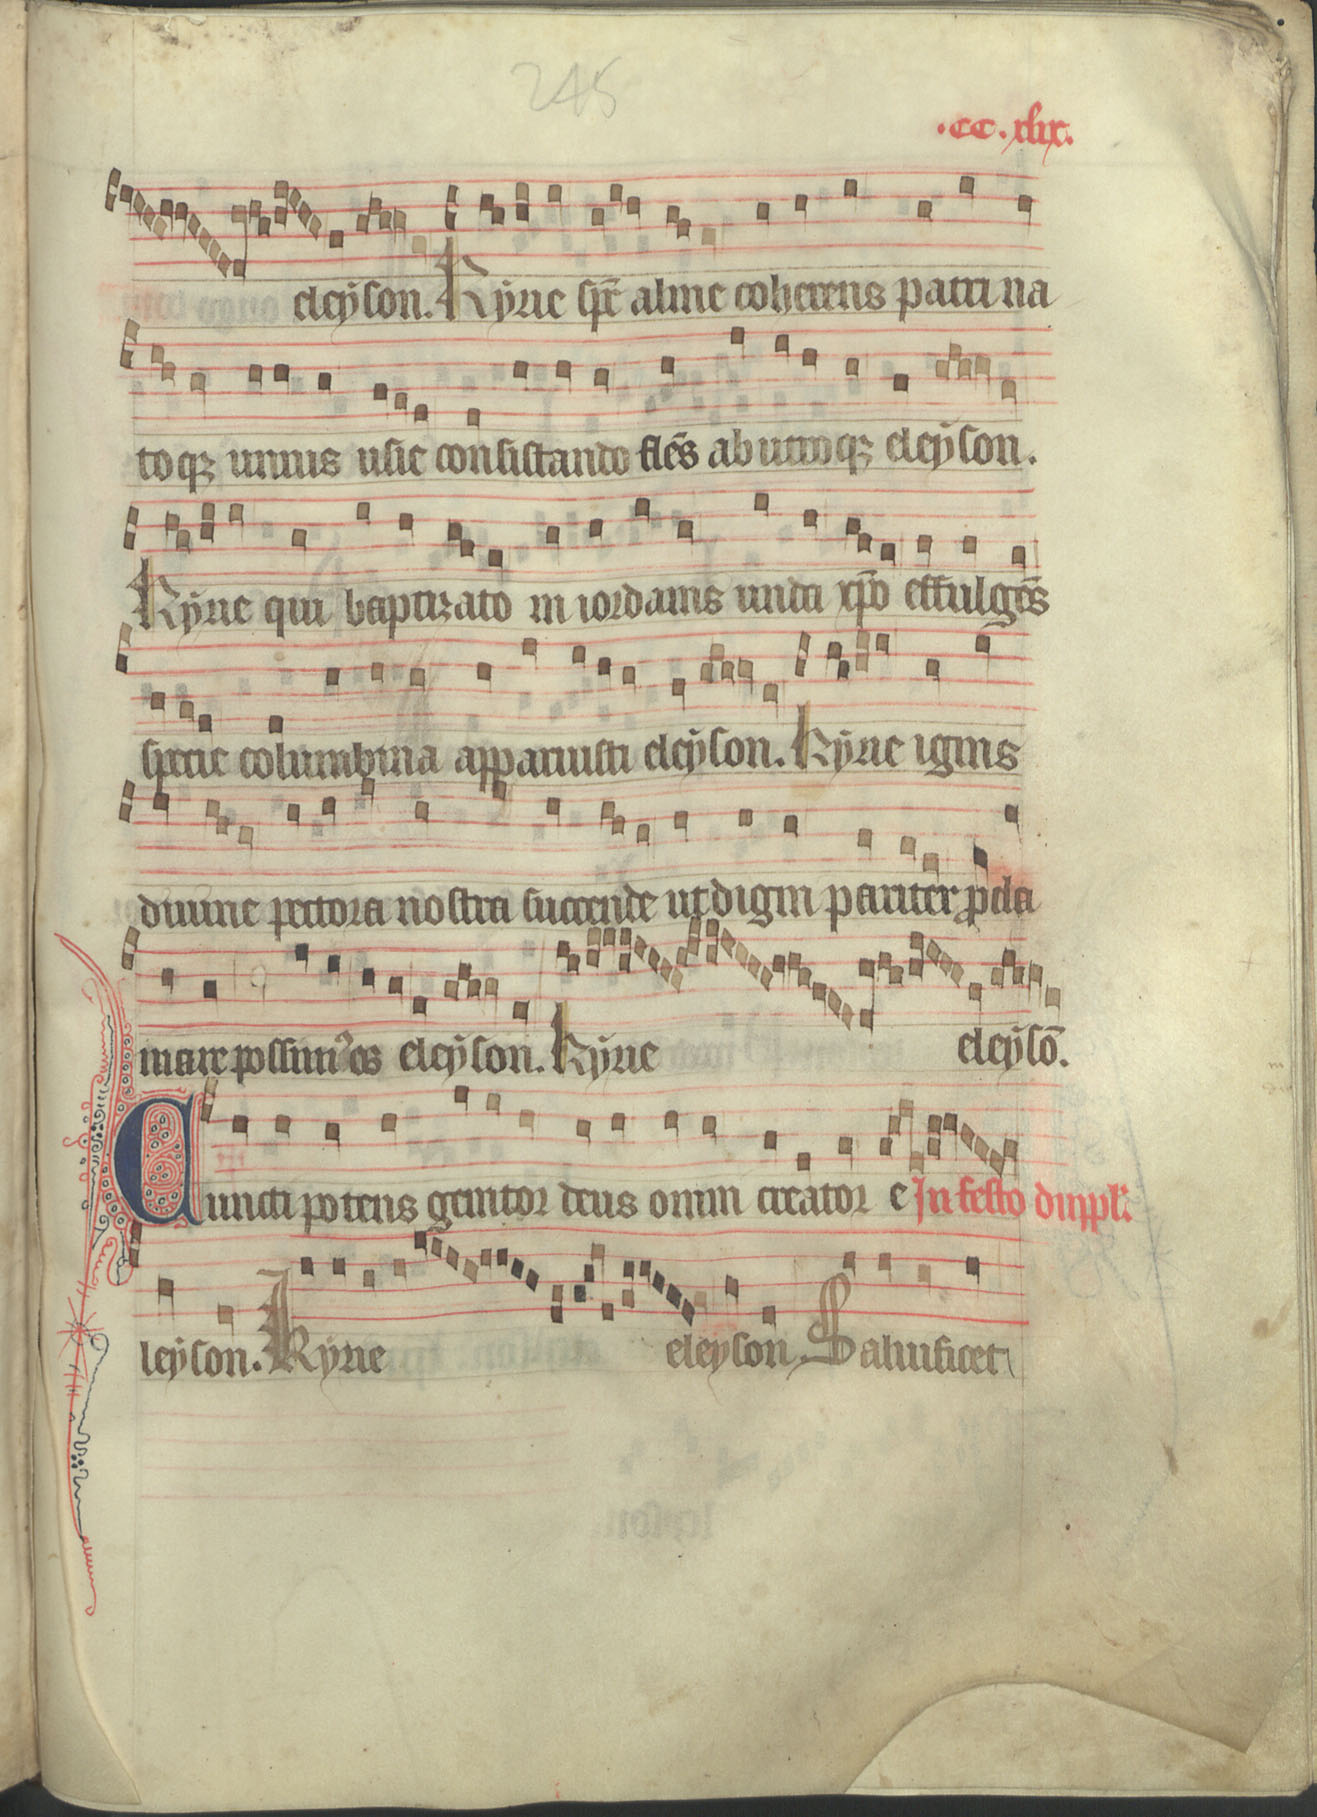 245
.cc.xlix.
eleÿson. Kÿrie sp̄c alme coherens patri na
toqꝫ unius usie consistando flēs ab utroqꝫ eleÿson.
Kÿrie qui baptizato in iordanis unda xp̄o effulgēs
specie columbina apparuisti eleÿson. Kÿrie ignis
diuine pectora nostra succende ut digni pariter ꝓcla
mare possimꝰ eleÿson. Kÿrie eleÿsō.
Cuncti potens genitor deus omni creator e In festo dupl'.
leÿson. Kÿrie eleÿson. Saluificet